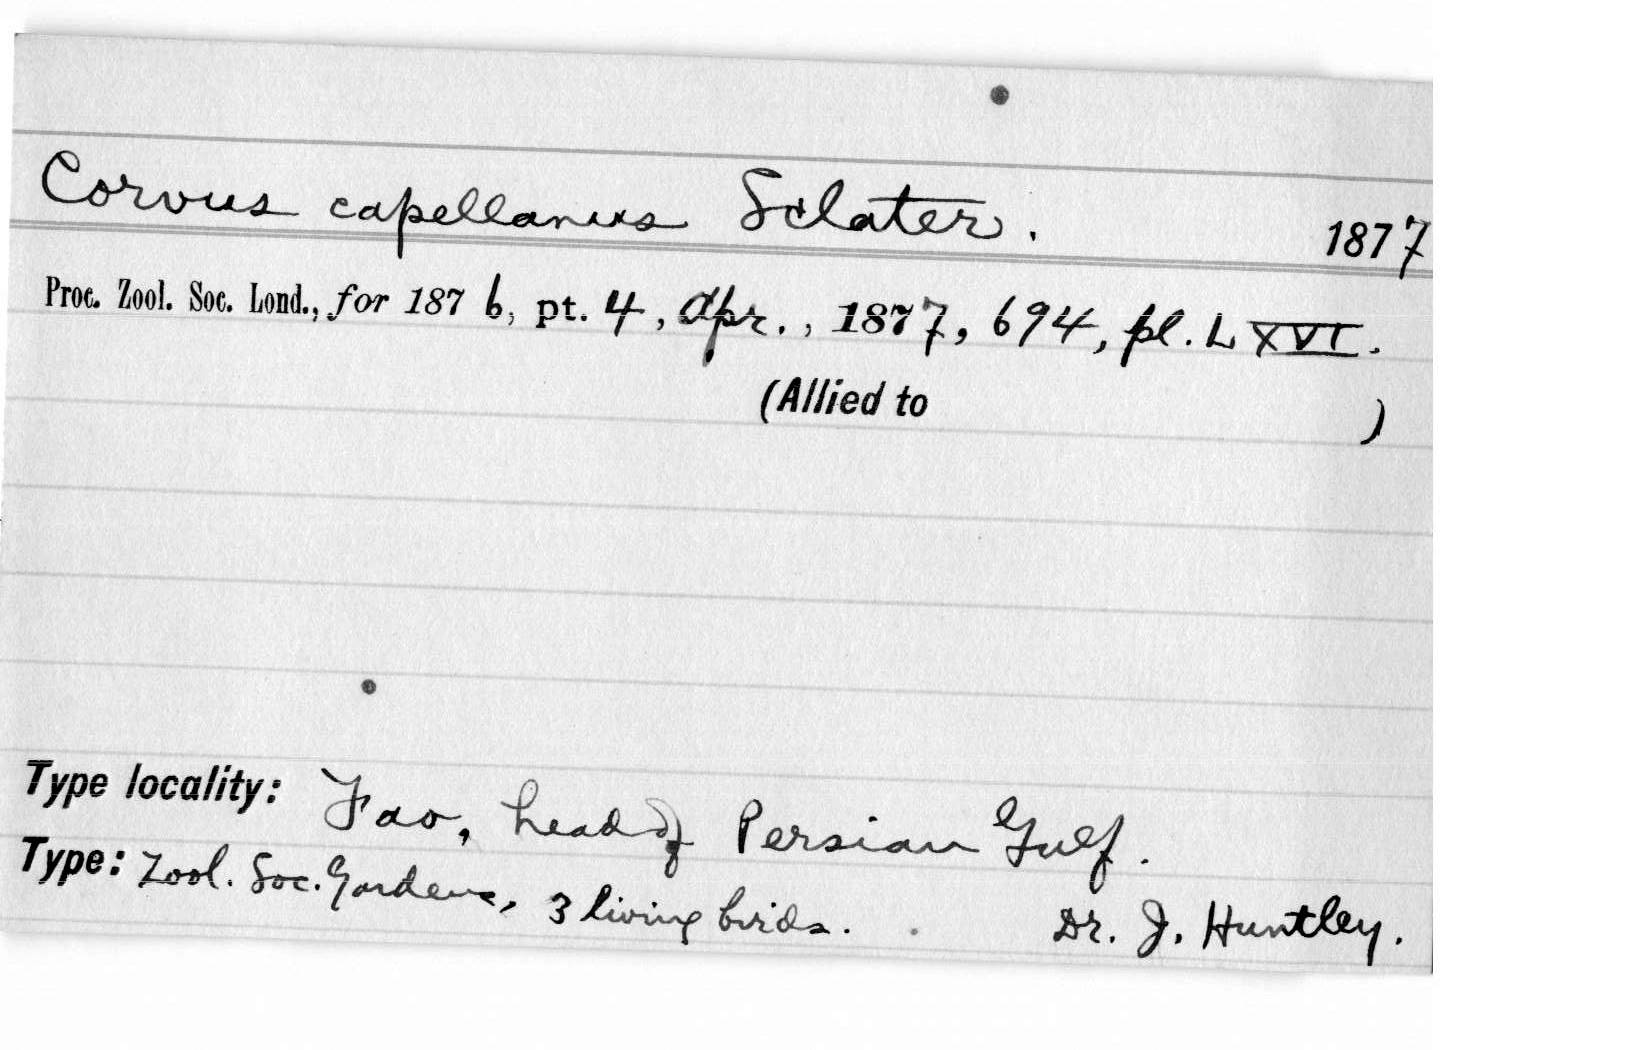 Corvus capellanus Sclater. 1877
Proc. Zool. Soc. Lond., for 1876, pt. 4, Apr., 1877, 694, pl. LXVI.
(Allied to )
Type locality: Fao, head of Persian Gulf.
Type: Zool. Soc. Gardens, 3 living birds. Dr. J. Huntley.